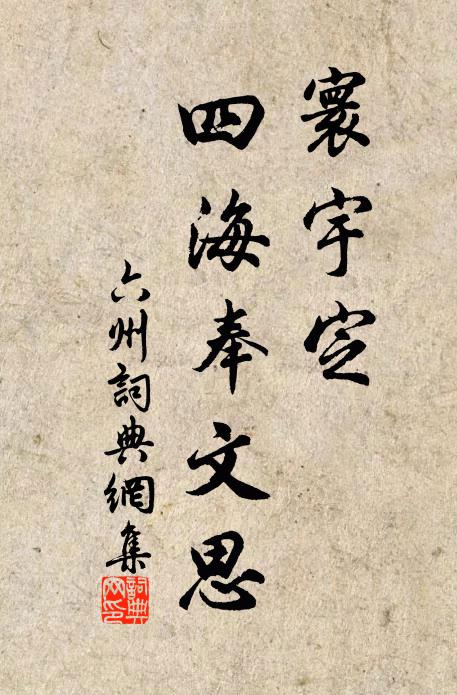 寰宇定
四海奉文思
六州詞典網集
詞典
网印